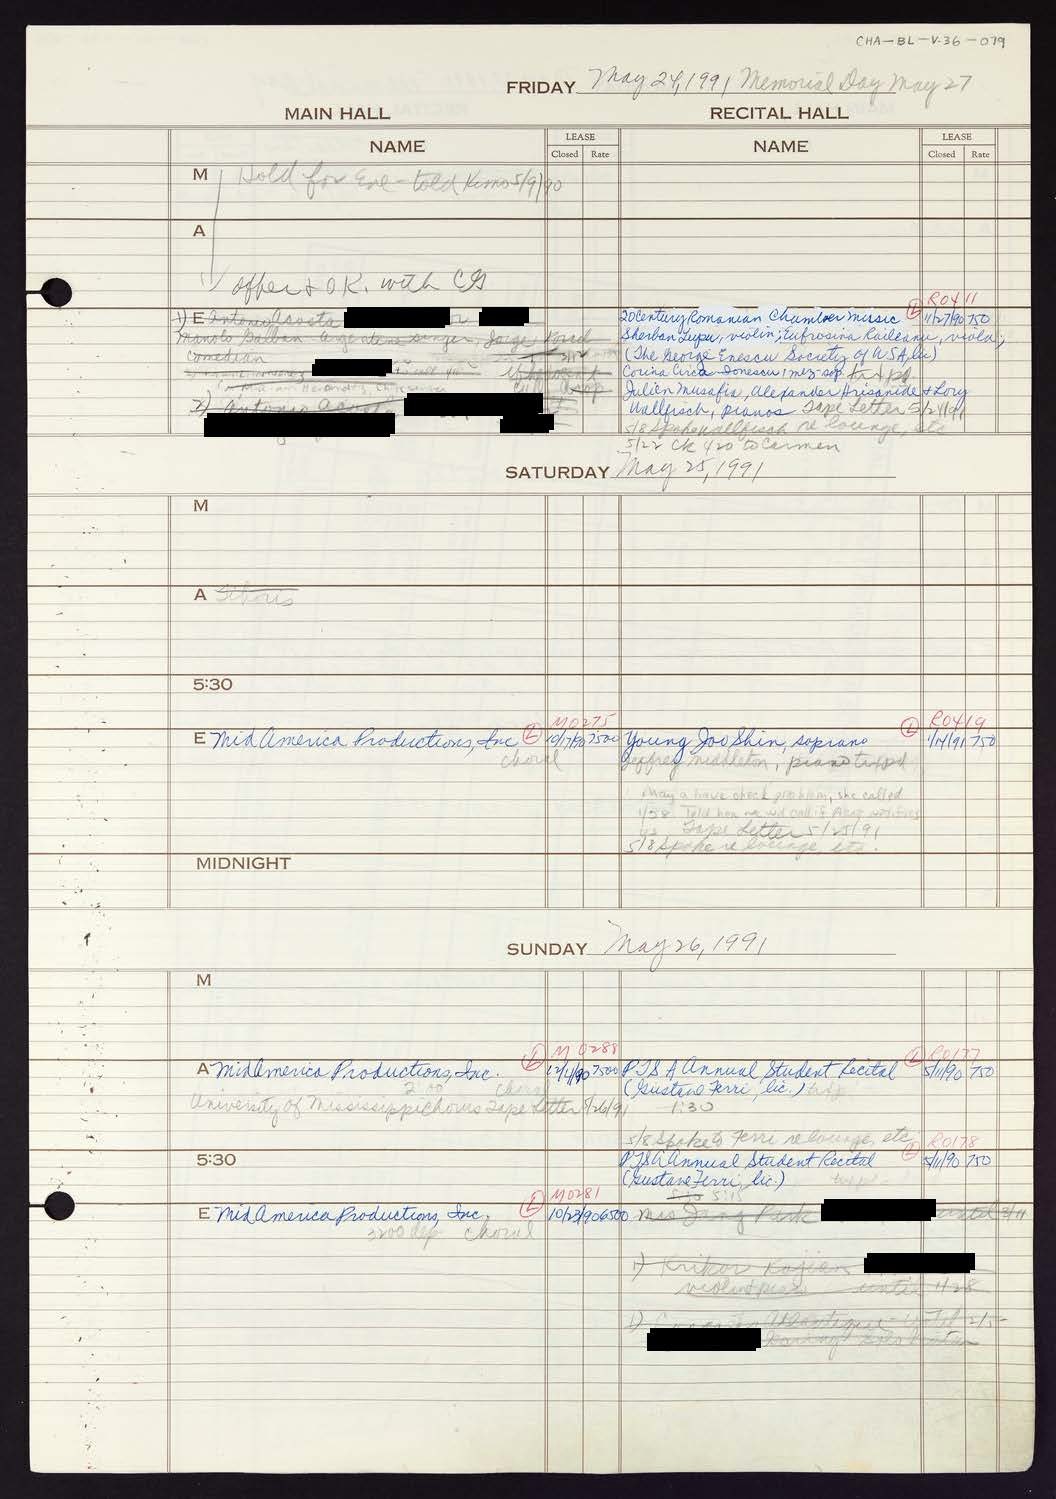 CHA-BL-V.36-079
FRIDAY May 24, 1991 Memorial Day May 27
MAIN HALL RECITAL HALL
NAME LEASE NAME LEASE
Closed Rate Closed Rate
M Hold for Eve - told Kimo 5/9/90
A
offer + O.K. with CG
1) E Antonio Acosta
Manolo Galban singer, Jorge
comedian
2) Antonio
R0411
20 Century Romanian Chamber Music L 11/27/90 750
Sherban Lupu, violin; Eufrosina Raileanu, viola;
(The George Enescu Society of USA, lic)
Corina Circa-Ionescu, mez-sop
Julien Musafia, Alexander Frisanide & Lory
Wallfisch, pianos Tape Letter 5/24/91
5/8 Spoke Wallfisch re lounge, etc
5/22 Ck 420 to Carmen
SATURDAY May 25, 1991
M
A
5:30
M0275 R0419
E MidAmerica Productions, Inc L 10/17/90 7500 Young Joo Shin, soprano L 1/14/91 750
choral Jeffrey Middleton, piano
May have check problem, she called
1/28 Told her we wd call if
Tape Letter 5/25/91
5/8 Spoke re lounge, etc.
MIDNIGHT
SUNDAY May 26, 1991
M
M0288 R0177
A MidAmerica Productions, Inc. L 7500 PTSA Annual Student Recital L 5/11/90 750
2:00 Choral (Gustave Ferri, lic.)
University of Mississippi Chorus Tape Letter 5/26/91 1:30
5/8 Spoke to Ferri re lounge, etc
R0178
5:30 PTSA Annual Student Recital L 5/11/90 750
(Gustave Ferri, lic.)
5:15
M0281
E MidAmerica Productions, Inc. L 10/23/90 6500 Mrs Jang Park until 3/11
3200 dep choral
1) Krikor
violin + piano until 1/28
1) until 2/5